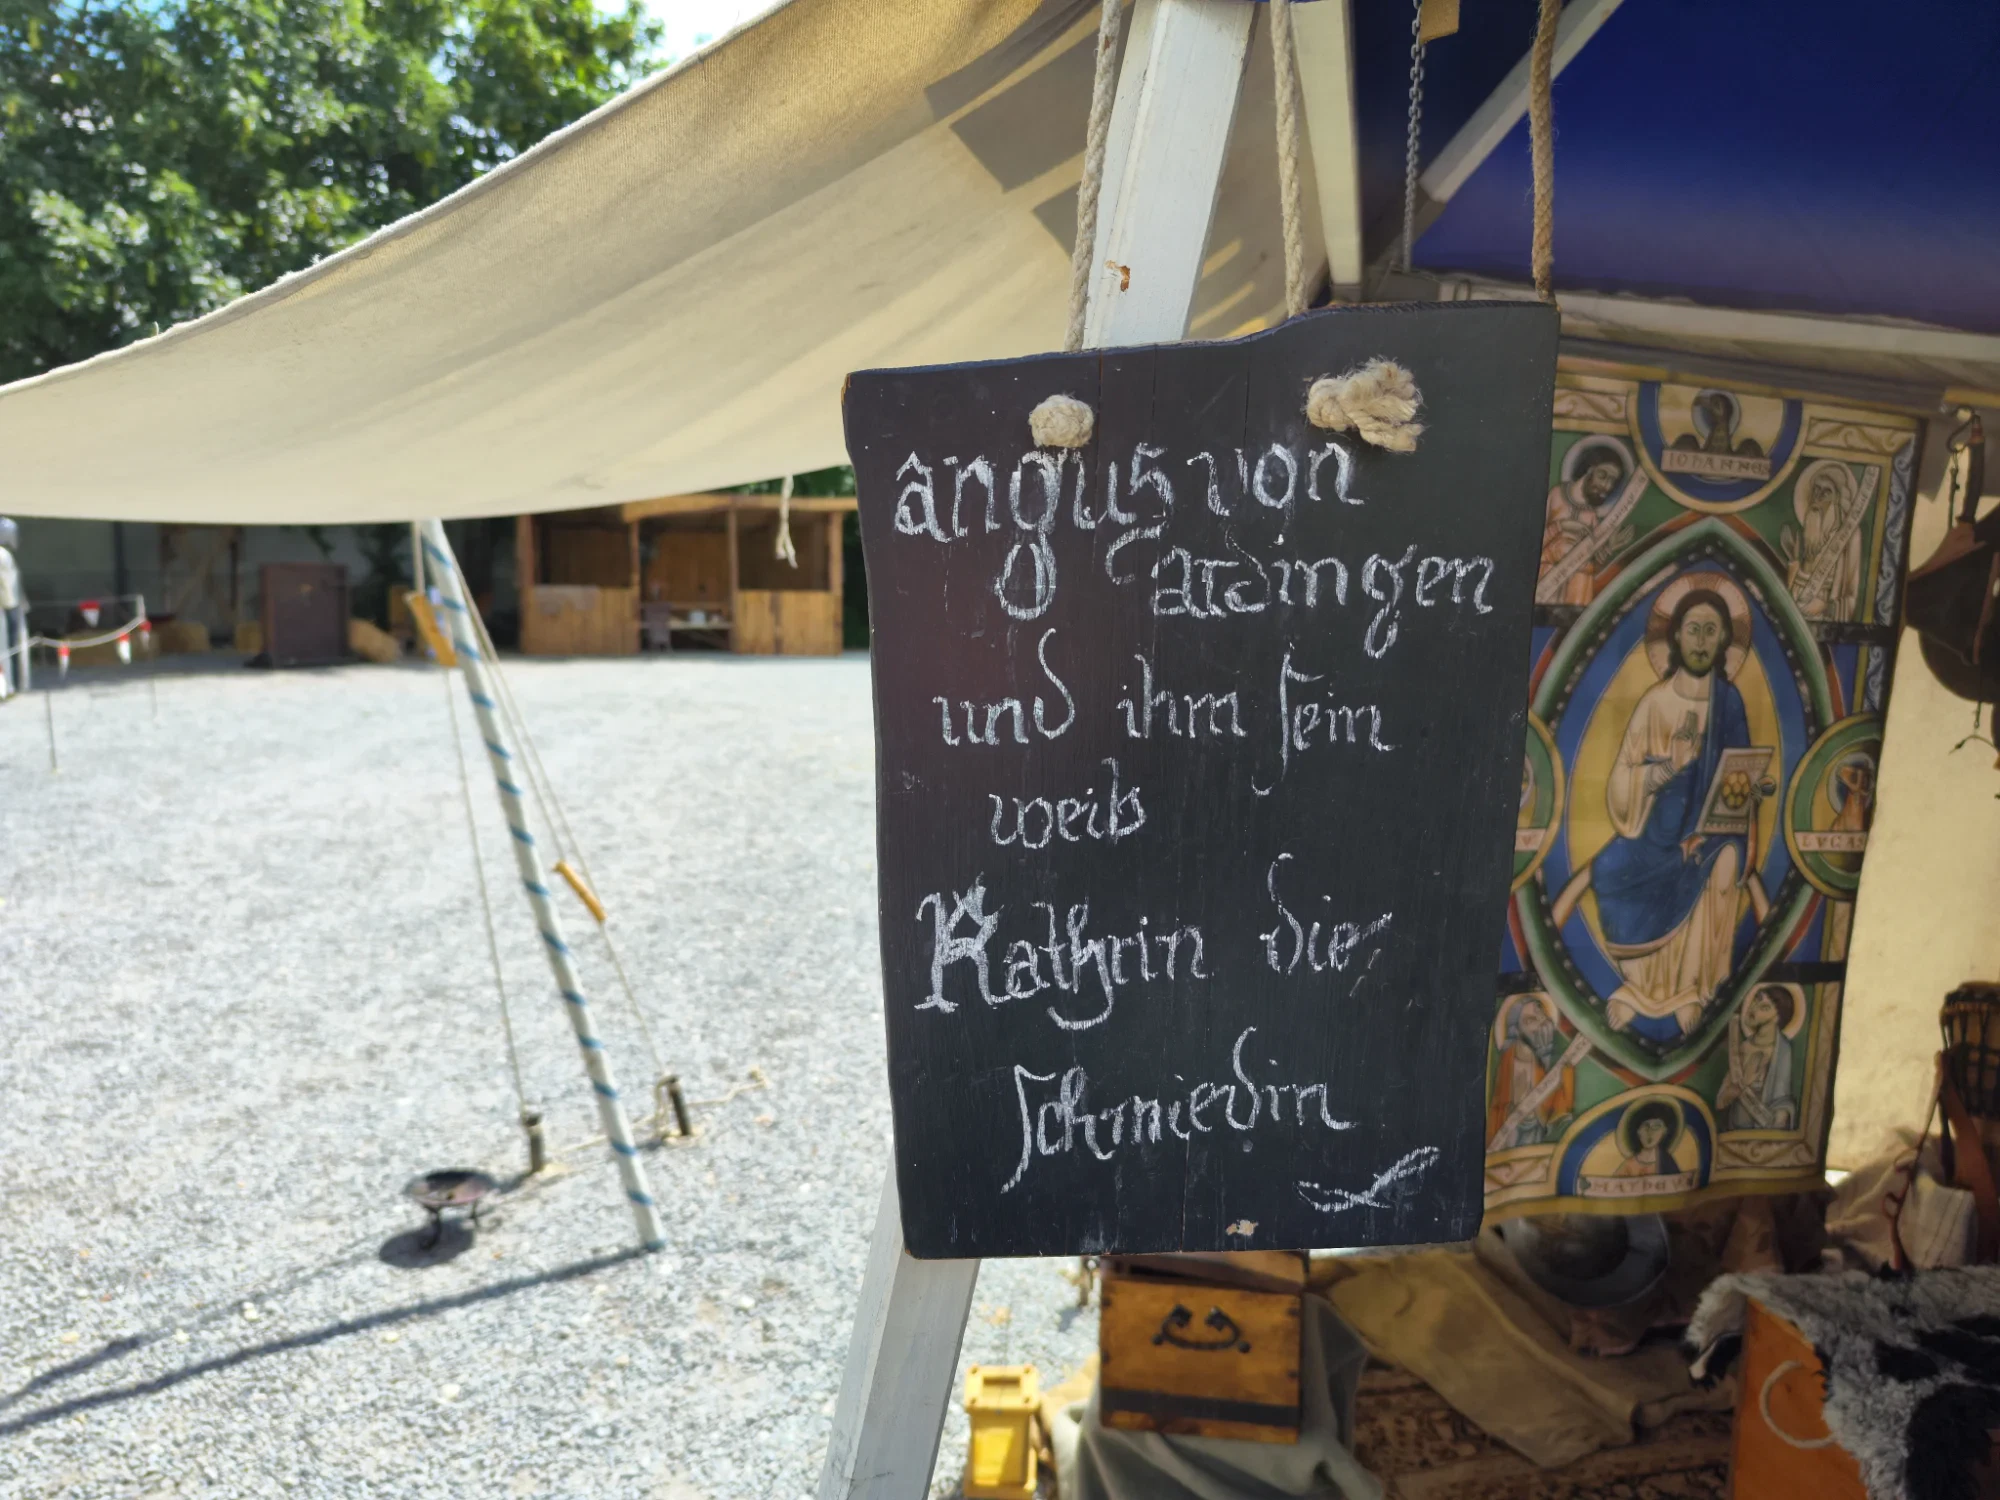 angus von
Gardingen
und ihm sein
weib
Kathrin die
schmiedin
IOHANNES
LVCAS
MATHEVS